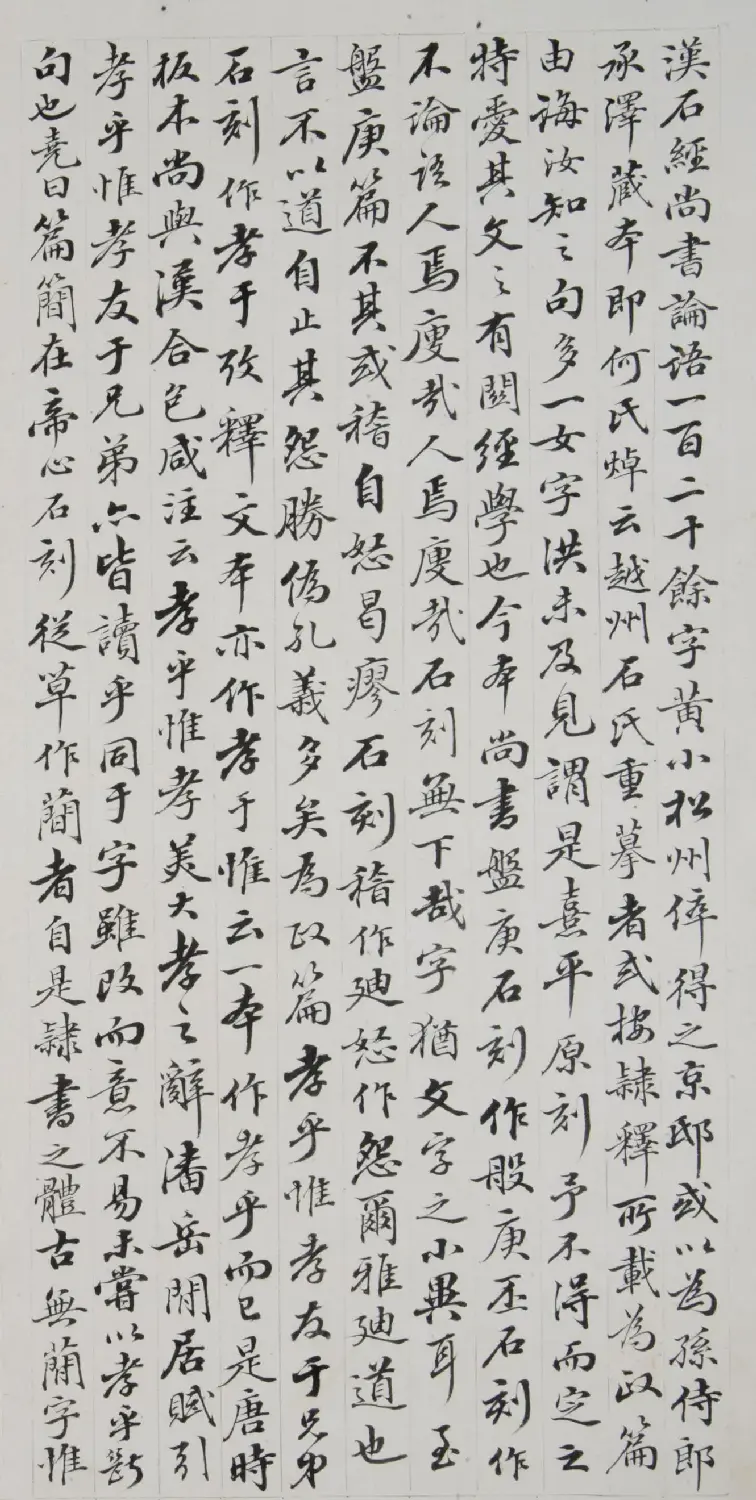 漢石經尚書論語一百二十餘字黃小松州倅得之京邸或以為孫侍郎
承澤藏本即何氏焯云越州石氏重摹者或按隸釋所載為政篇
由誨汝知之句多一女字洪未及見謂是熹平原刻予不得而定之
特愛其文之有關經學也今本尚書盤庚石刻作般庚丕石刻作
不論語人焉廋哉人焉廋哉石刻無下哉字猶文字之小異耳至
盤庚篇不其或稽自怒曷瘳石刻稽作迪怒作怨爾雅迪道也
言不以道自止其怨勝偽孔義多矣為政篇孝乎惟孝友于兄弟
石刻作孝于攷釋文本亦作孝于惟云一本作孝乎而已是唐時
板本尚與漢合包咸注云孝乎惟孝美大孝之辭潘岳閒居賦引
孝乎惟孝友于兄弟亦皆讀乎同于字雖改而意不易未嘗以孝乎斷
句也堯曰篇簡在帝心石刻從草作蕳者自是隸書之體古無蕳字惟